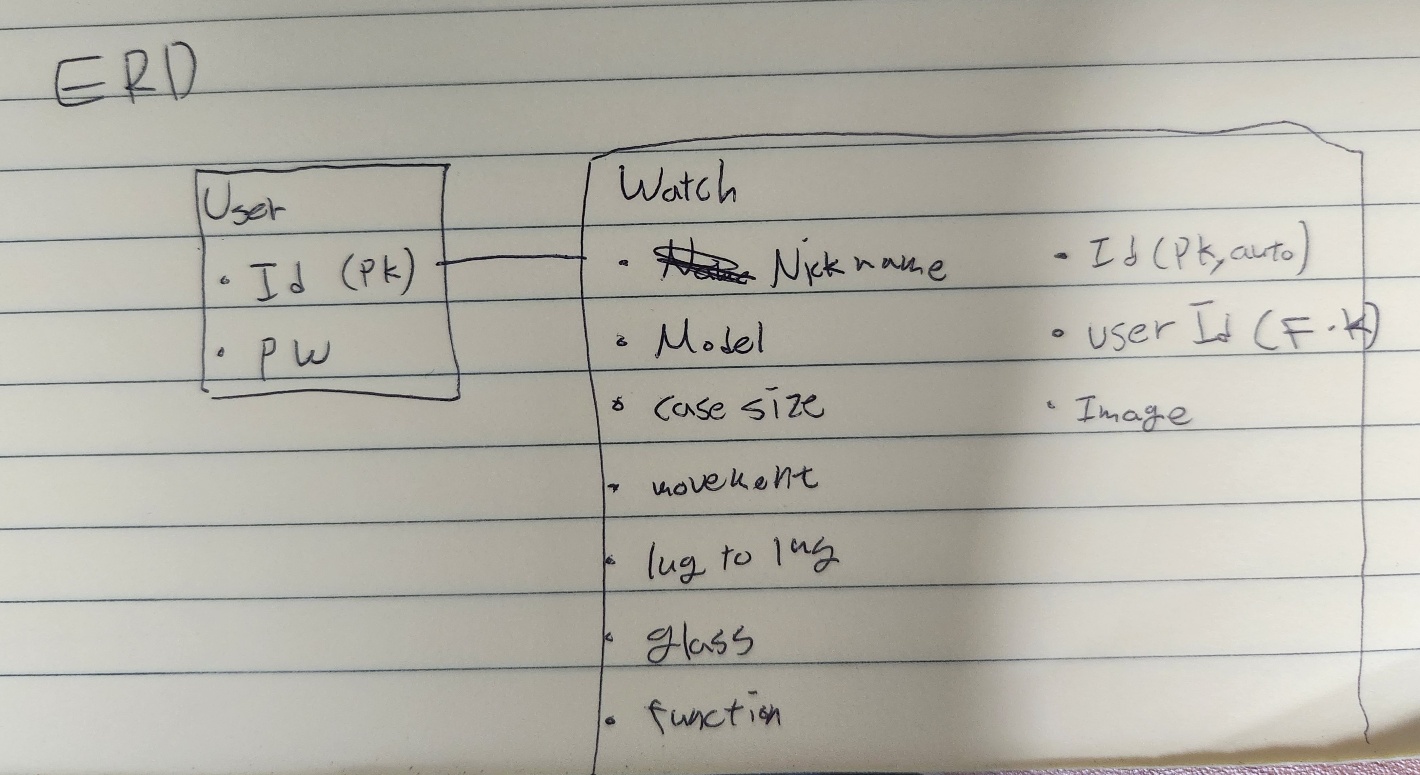 ERD
User
• Id (PK)
• PW
Watch
• Nickname
• Model
• case size
• movement
• lug to lug
• glass
• function
• Id (PK, auto)
• user Id (F.K)
• Image